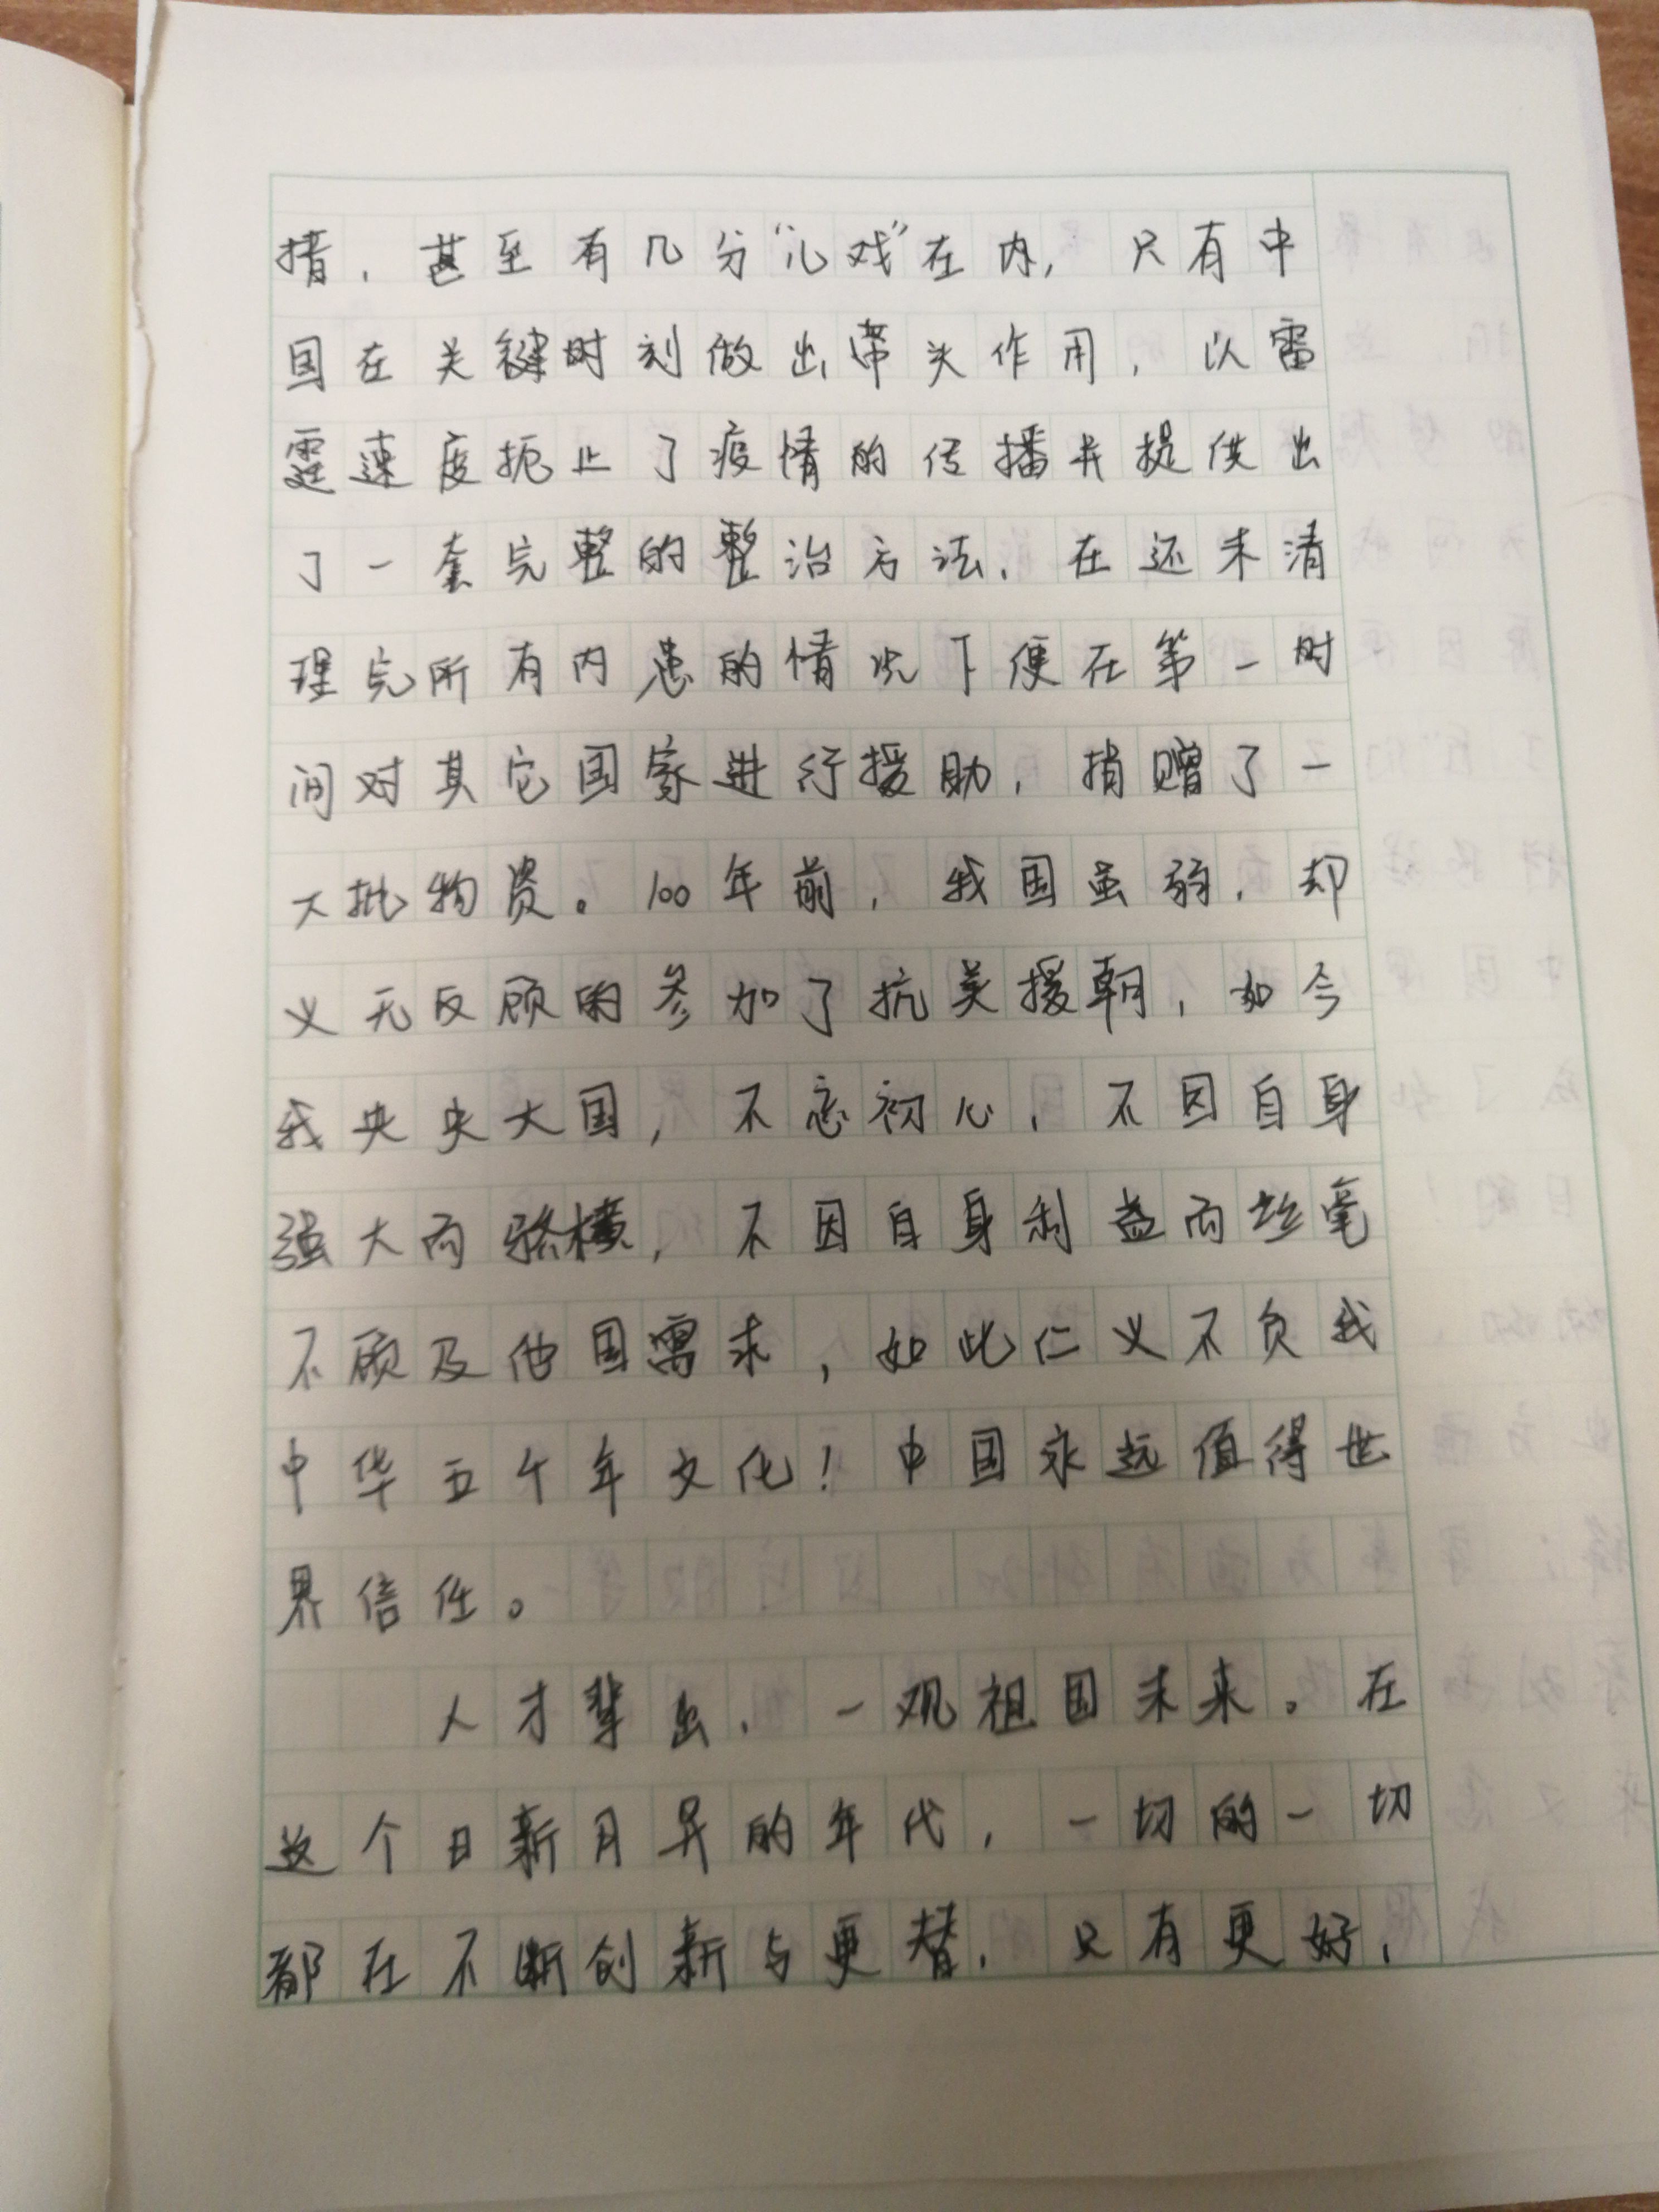 措，甚至有几分“儿戏”在内，只有中
国在关键时刻做出带头作用，以雷
霆速度扼止了疫情的传播并提供出
了一套完整的整治方法，在还未清
理完所有内患的情况下便在第一时
间对其它国家进行援助，捐赠了一
大批物资。100年前，我国虽弱，却
义无反顾的参加了抗美援朝，如今
我央央大国，不忘初心，不因自身
强大而骄横，不因自身利益而丝毫
不顾及他国需求，如此仁义不负我
中华五千年文化！中国永远值得世
界信任。
人才辈出，一观祖国未来。在
这个日新月异的年代，一切的一切
都在不断创新与更替，只有更好，